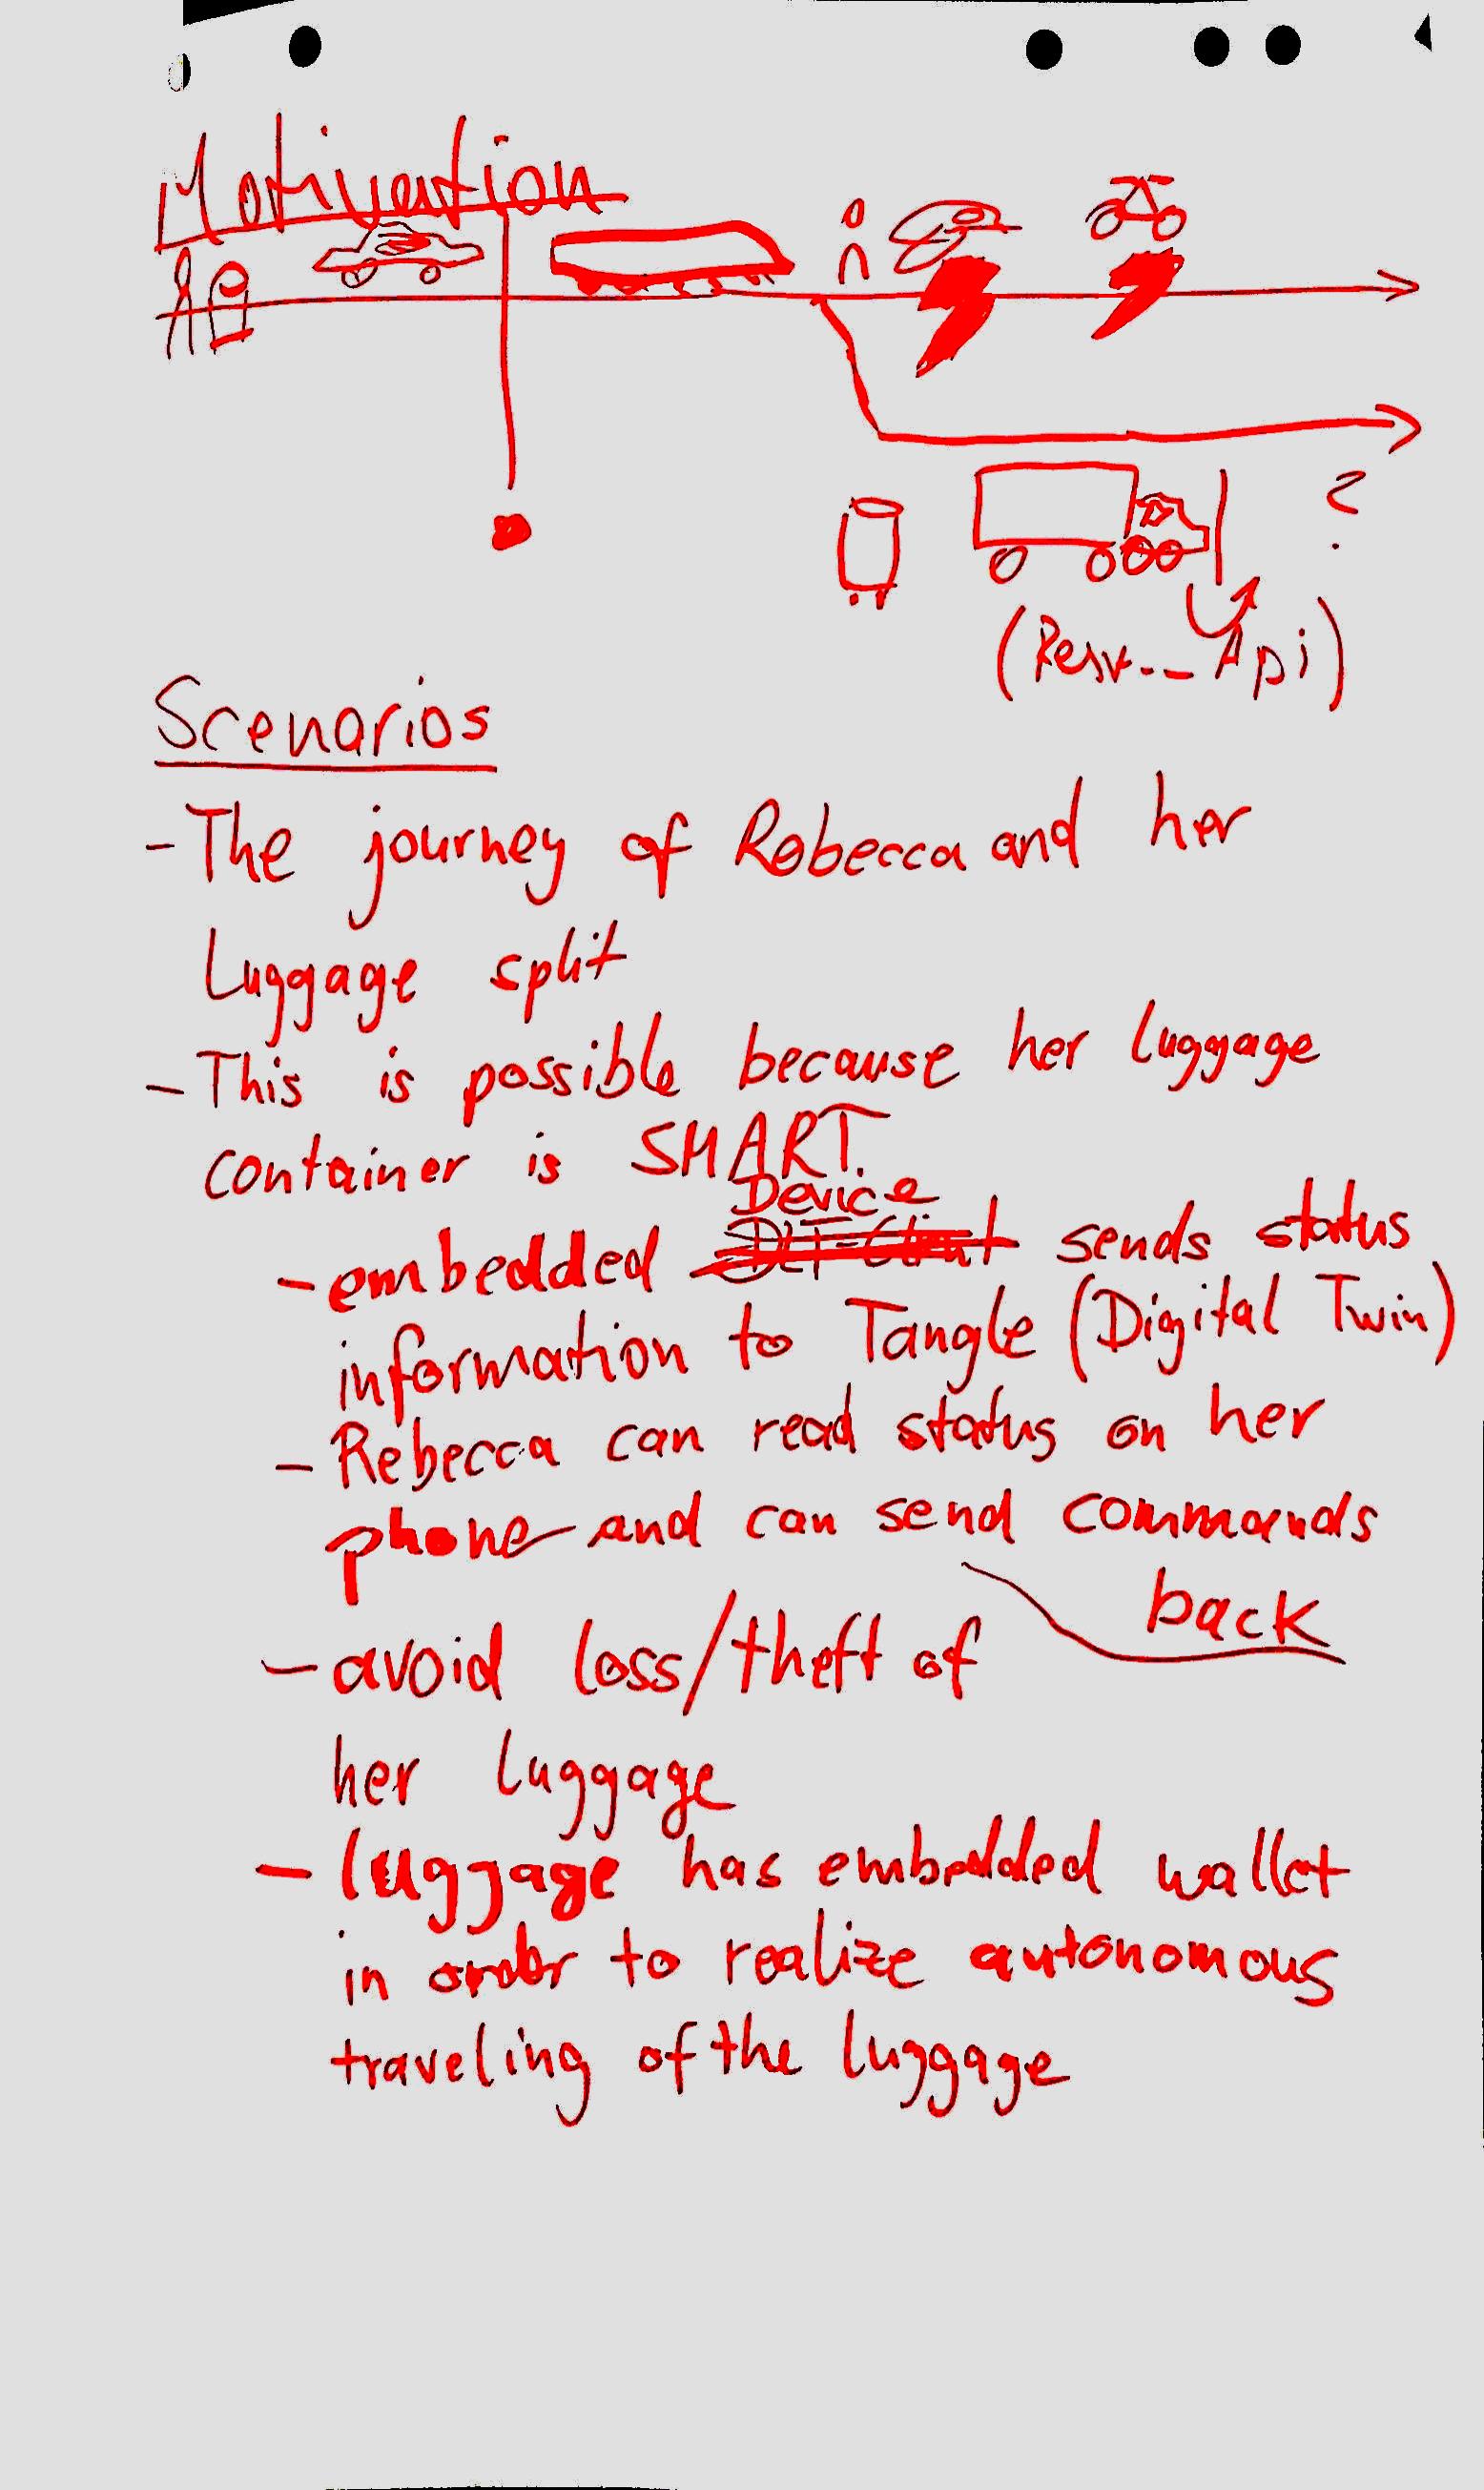 Motivation
?
(Resv-- Api)
Scenarios
- The journey of Robecca and her
Luggage split
- This is possible because her luggage
container is SMART.
Device
- embedded DLT-Client sends status
information to Tangle (Digital Twin)
- Rebecca can read status on her
phone and can send commands
back
- avoid loss/theft of
her luggage
- luggage has embedded wallet
in order to realize autonomous
traveling of the luggage